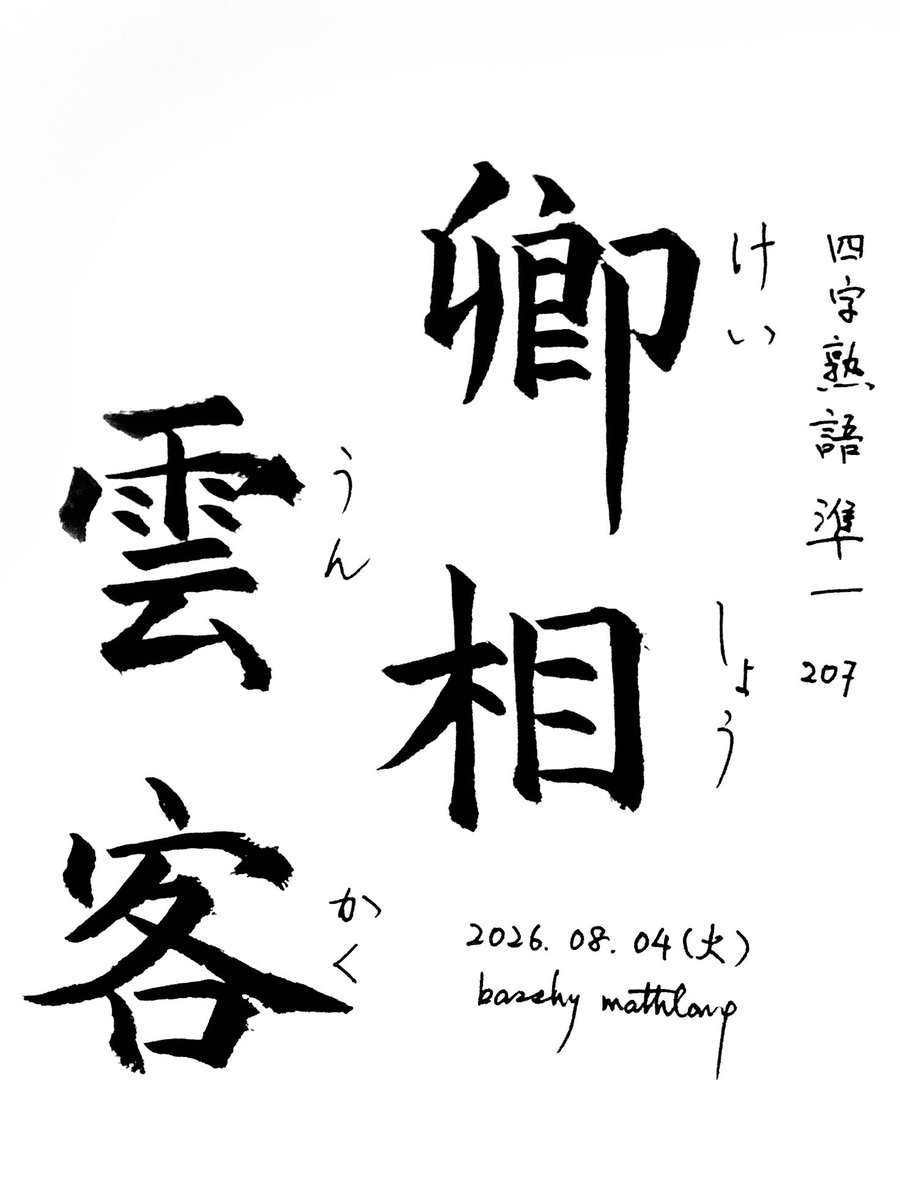 四字熟語 準一 207
卿相
けいしょう
雲客
うんかく
2026. 08. 04 (火)
basshy mathlang